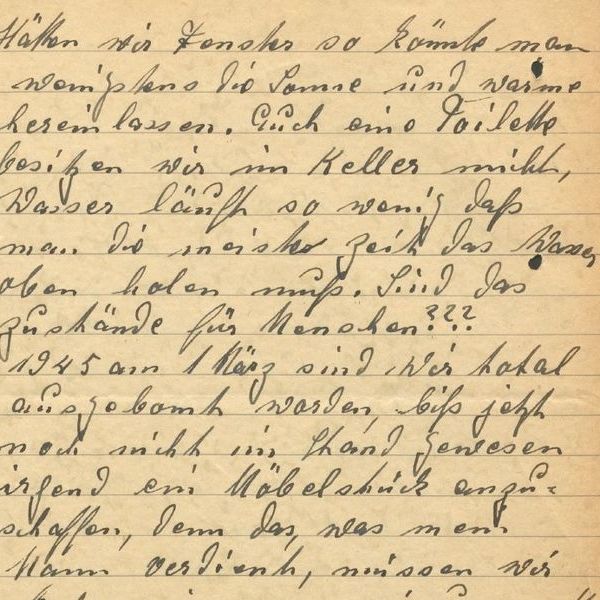 Hätten wir Fenster so könnte man
wenigstens die Sonne und warme
herein lassen. Auch eine Toilette
besitzen wir im Keller nicht,
Wasser läuft so wenig daß
man die meiste zeit das Wasser
oben holen muß. Sind das
zustände für Menschen???
1945 am 1 März sind wir total
ausgebomt worden, biß jetzt
noch nicht im Stand gewesen
irgend ein Möbelstück anzu=
schaffen, denn das, was mein
Mann verdient, müssen wir